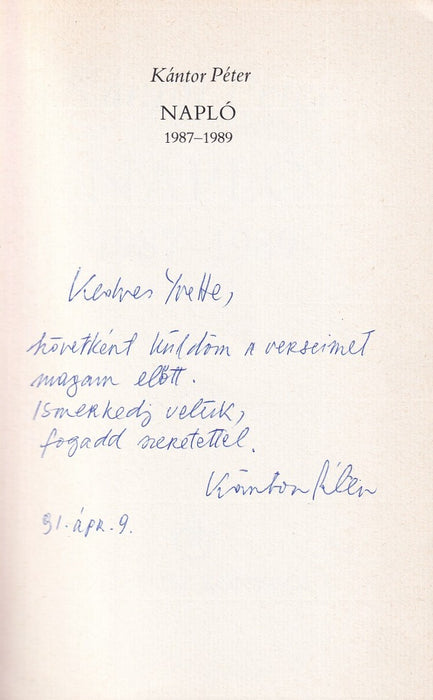 Kántor Péter
NAPLÓ
1987–1989
Kedves Yvette,
követként küldöm a verseimet
magam előtt.
Ismerkedj velük,
fogadd szeretettel.
Kántor Péter
91. ápr. 9.